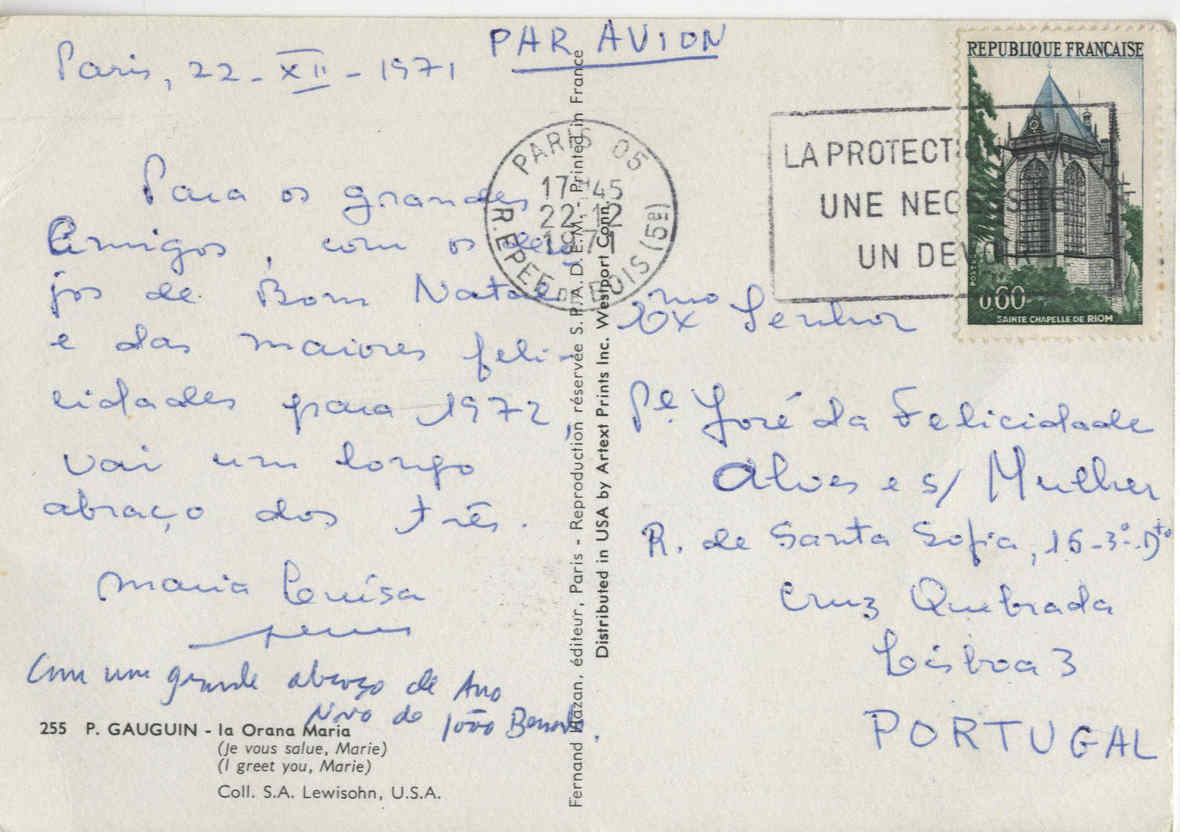 PAR AVION
Paris, 22-XII-1971
Para os grandes
Amigos, com os dese
jos de Bom Natal
e das maiores feli-
cidades para 1972,
vai um longo
abraço dos três.
Maria Luísa
Com um grande abraço de Ano
Novo de João
255 P. GAUGUIN - Ia Orana Maria
(Je vous salue, Marie)
(I greet you, Marie)
Coll. S.A. Lewisohn, U.S.A.
Fernand Hazan, éditeur, Paris - Reproduction réservée S.P.A.D.E.M. - Printed in France
Distributed in USA by Artext Prints Inc. Westport Conn.
PARIS 05
17H45
22-12
1971
R. EPEE DE BOIS (5E)
LA PROTECT
UNE NECESSITE
UN DEVOIR
REPUBLIQUE FRANÇAISE
POSTES
0,60
SAINTE CHAPELLE DE RIOM
Exmo Senhor
Pe. José da Felicidade
Alves e s/ Mulher
R. de Santa Sofia, 16-3º-Dto
Cruz Quebrada
Lisboa 3
PORTUGAL